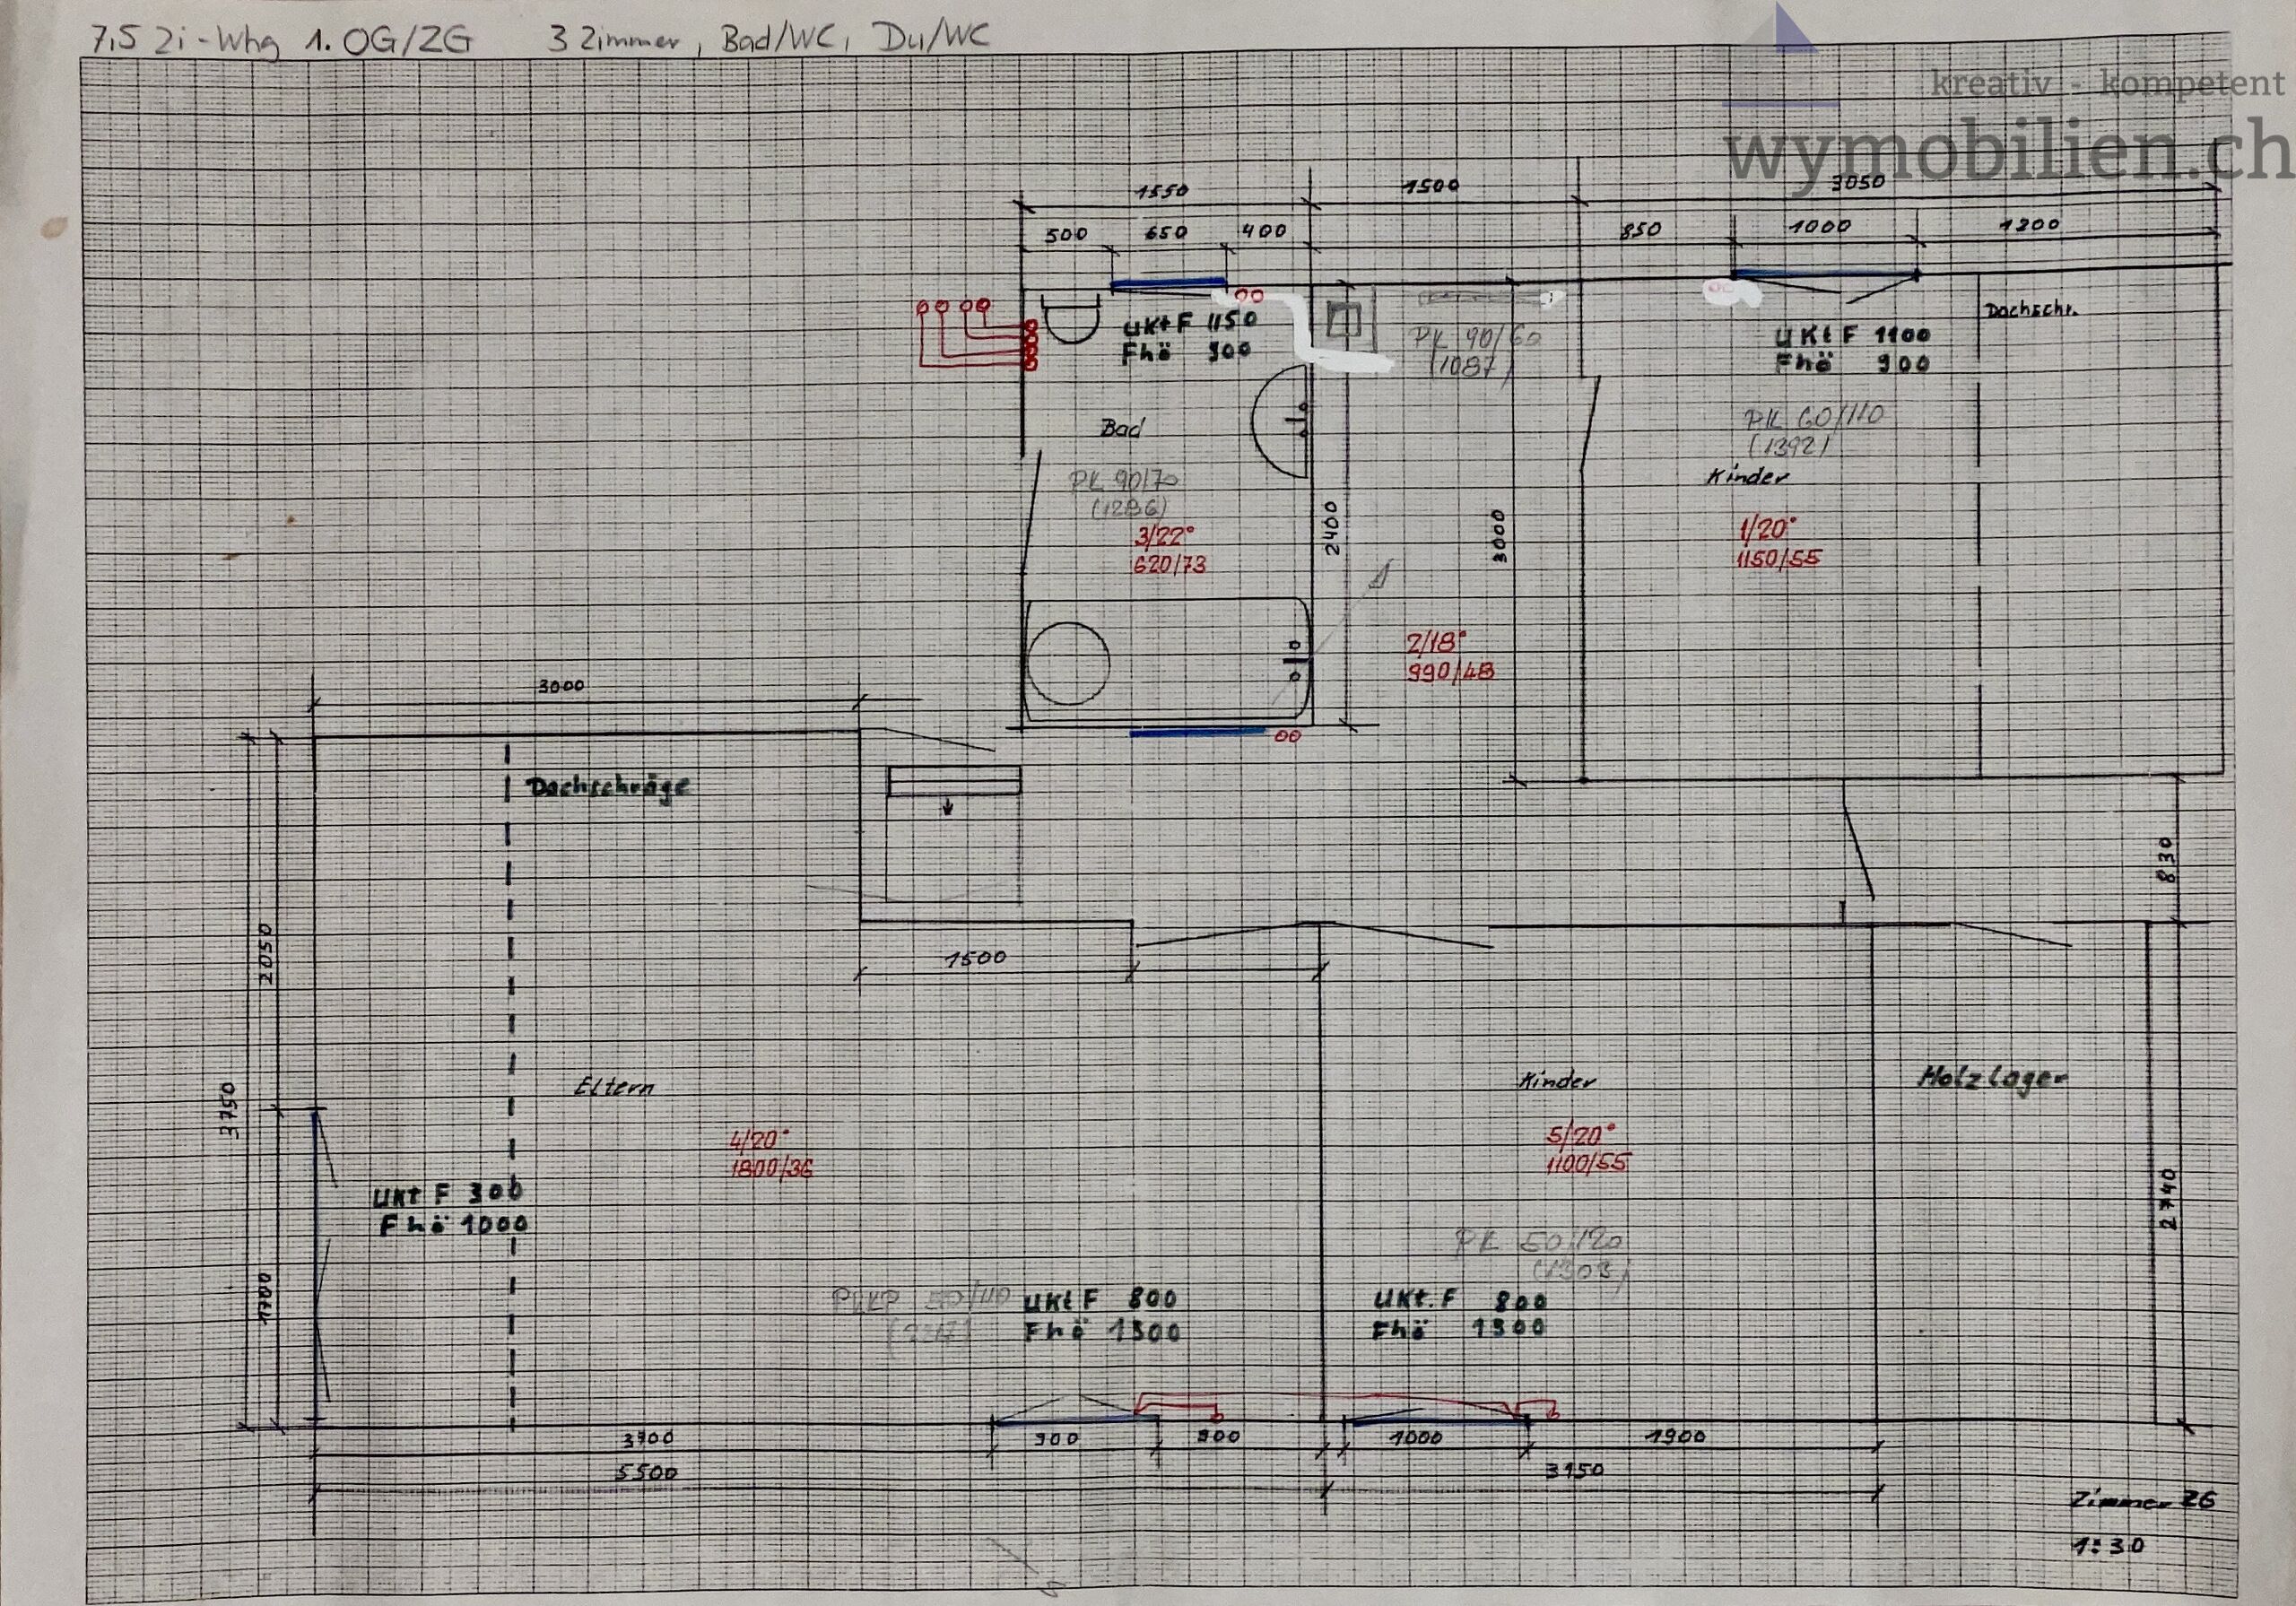 7,5 Zi-Whg 1. OG/ZG 3 Zimmer, Bad/WC, Du/WC
kreativ - kompetent
wymobilien.ch
1550
1500
3050
500
650
400
850
1000
1200
UKt F 1150
Fhö 900
PK 90/60
(1087)
UKt F 1100
Fhö 900
Dachschr.
Bad
PK 60/110
(1392)
Kinder
PK 90/70
(1286)
3/22°
620/73
2400
3000
1/20°
1150/55
2/18°
990/48
3000
Dachschräge
830
2050
1500
3750
Eltern
Kinder
Holzlager
4/20°
1800/36
5/20°
1100/55
2740
UKt F 300
Fhö 1000
1700
PK 50/120
(1303)
UKt F 800
Fhö 1300
UKt. F 800
Fhö 1300
3700
900
900
1000
1900
5500
3150
Zimmer ZG
1:30